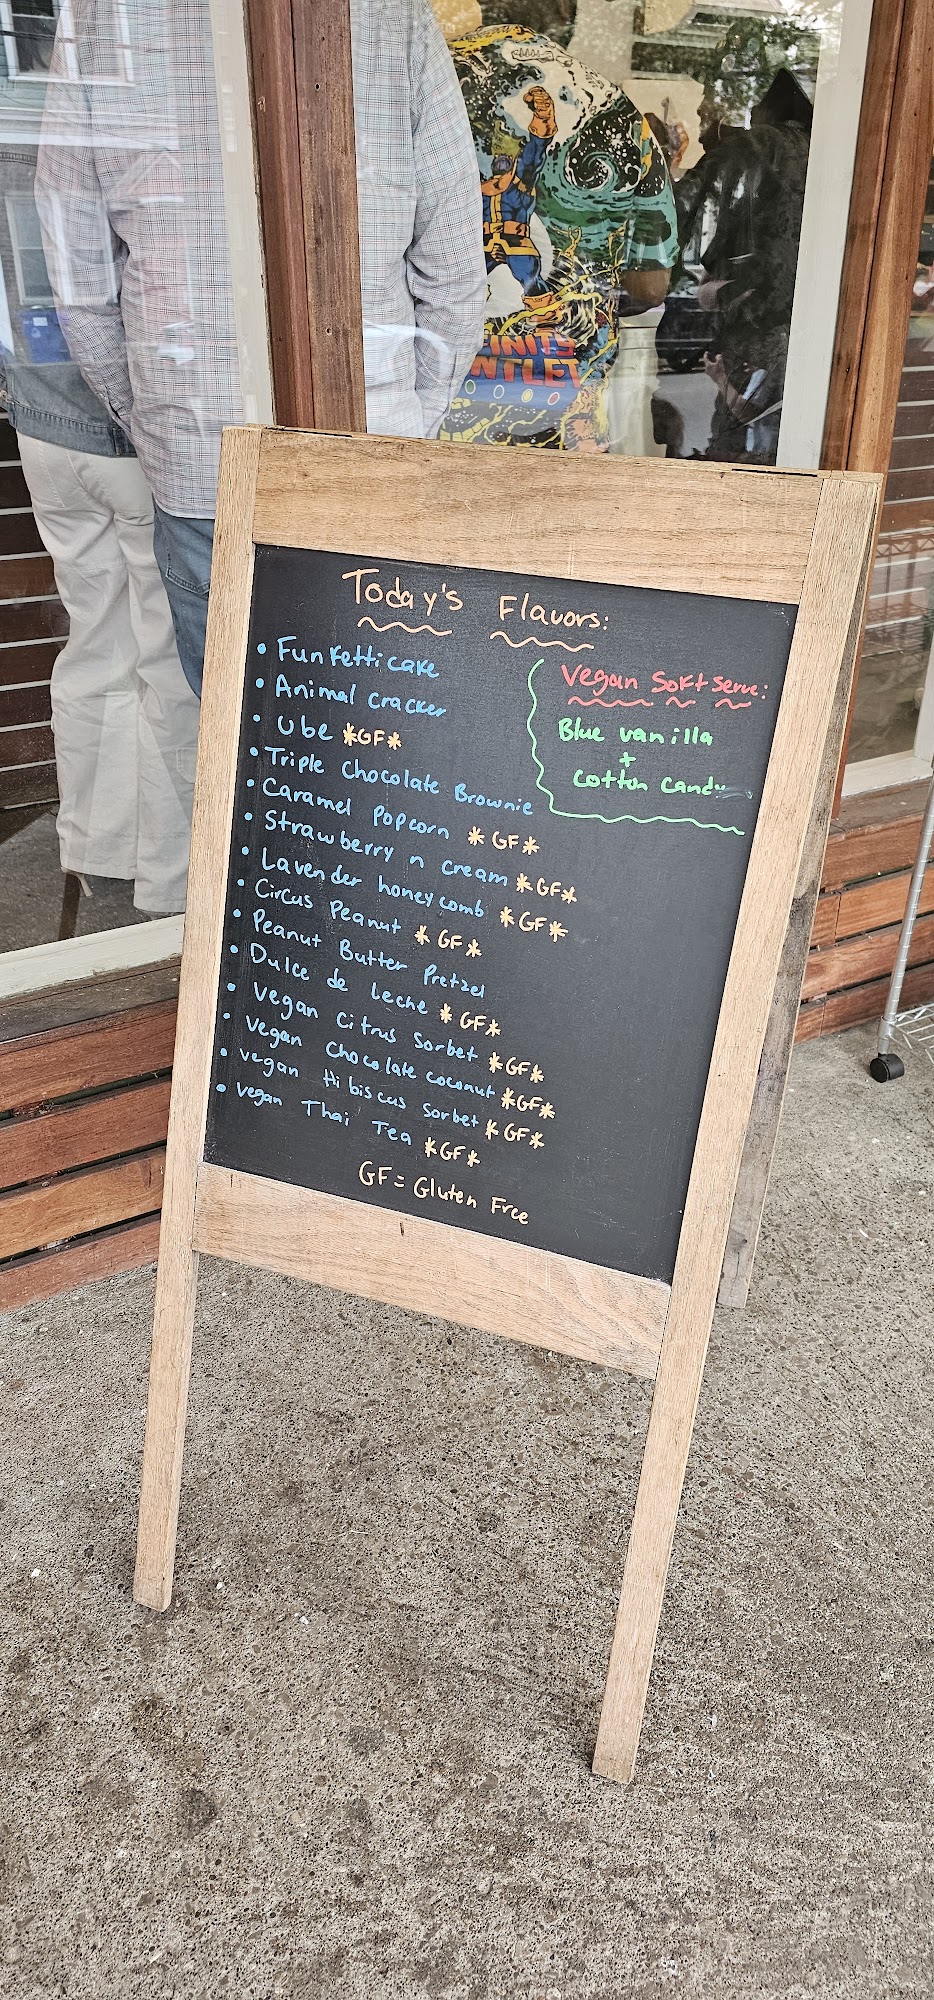 INFINITY
GAUNTLET
Today's Flavors:
• Funfetti cake
• Animal cracker
• Ube *GF*
• Triple Chocolate Brownie
• Caramel Popcorn *GF*
• Strawberry n cream *GF*
• Lavender honeycomb *GF*
• Circus Peanut *GF*
• Peanut Butter Pretzel
• Dulce de Leche *GF*
• Vegan Citrus Sorbet *GF*
• Vegan Chocolate coconut *GF*
• Vegan Hibiscus Sorbet *GF*
• Vegan Thai Tea *GF*
GF = Gluten Free
Vegan Soft serve:
Blue vanilla
+
Cotton Candy